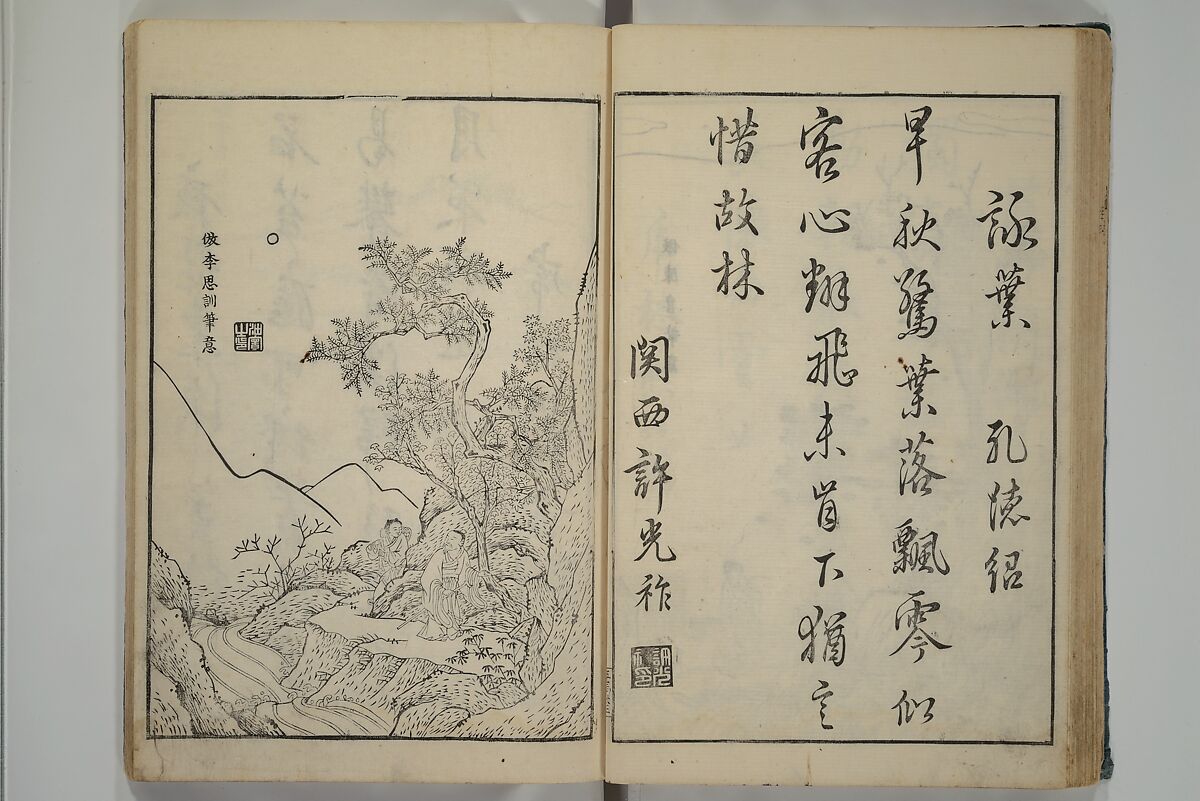 詠葉 孔德紹
早秋驚葉落飄零似
客心翔飛未肯下猶言
惜故林
関西許光祚
倣李思訓筆意